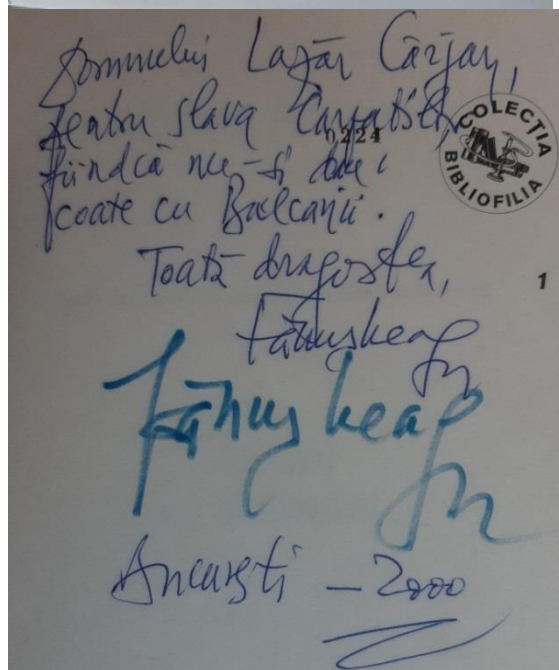 Domnului Lazăr Cârjan,
pentru slava Carpaților
0224
fiindcă nu-și dau
coate cu Balcanii.
Toată dragostea,
Fănuș Neagu
Fănuș Neagu
București – 2000
COLECȚIA
BIBLIOFILIA
1